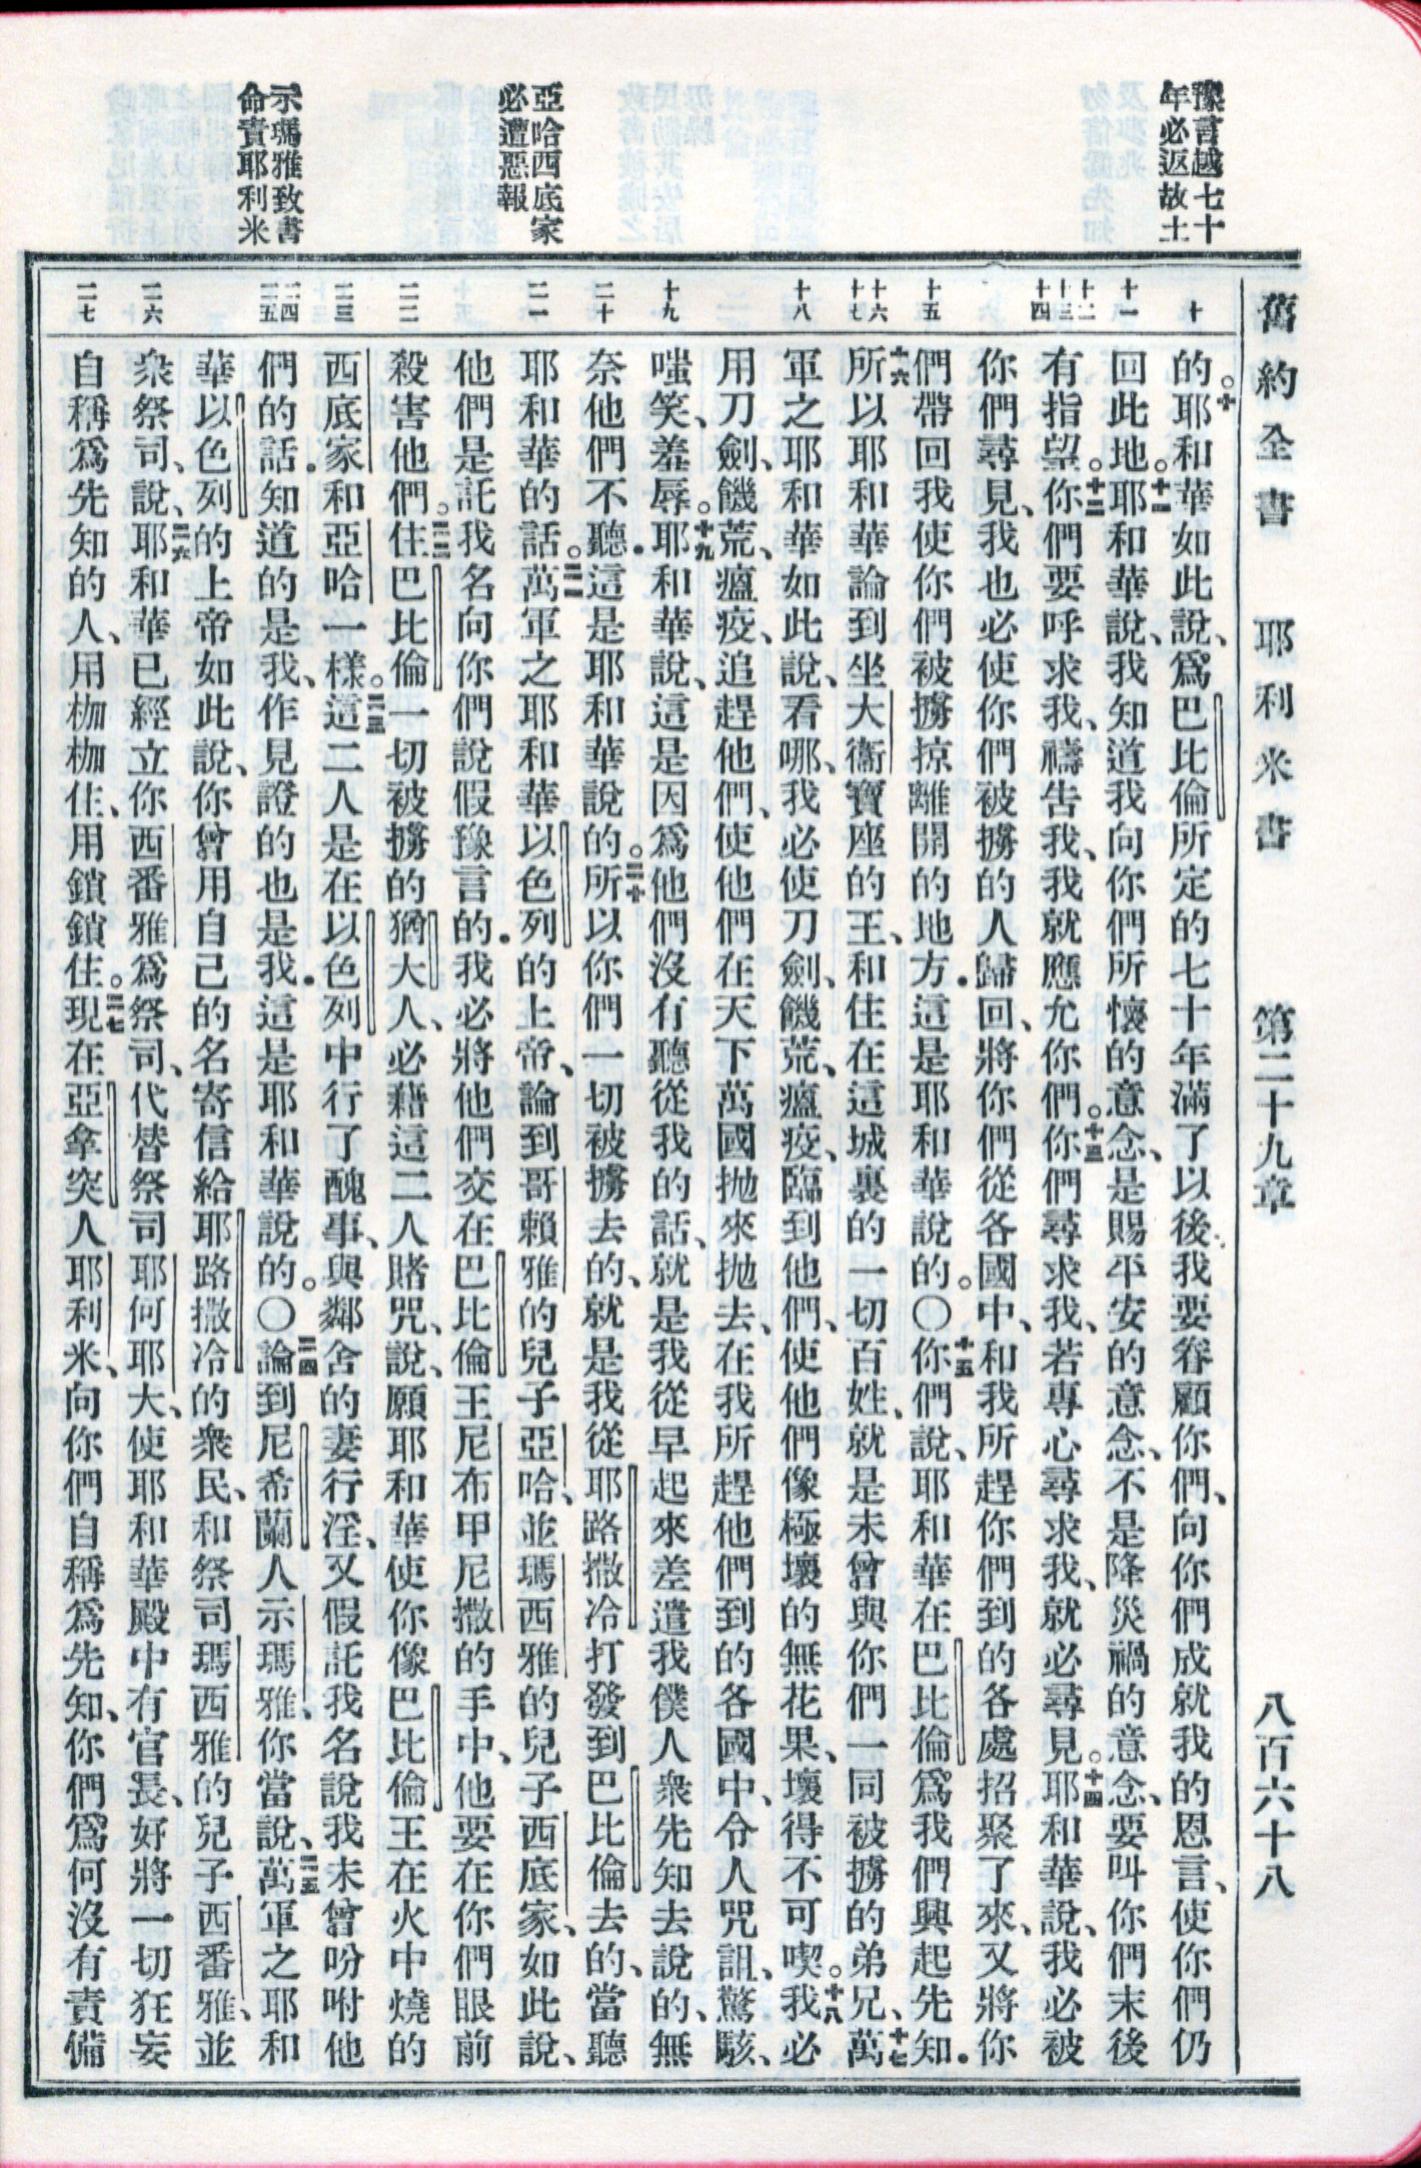 舊約全書 耶利米書 第二十九章 八百六十八
豫言越七十
年必返故土
亞哈西底家
必遭惡報
示瑪雅致書
命責耶利米
十
十一
十二
十三
十四
十五
十六
十七
十八
十九
二十
二一
二二
二三
二四
二五
二六
二七
的。○十耶和華如此說、爲巴比倫所定的七十年滿了以後我要眷顧你們、向你們成就我的恩言、使你們仍
回此地。十一耶和華說、我知道我向你們所懷的意念、是賜平安的意念、不是降災禍的意念、要叫你們末後
有指望。十二你們要呼求我、禱告我、我就應允你們。十三你們尋求我、若專心尋求我、就必尋見。十四耶和華說、我必被
你們尋見、我也必使你們被擄的人歸回、將你們從各國中、和我所趕你們到的各處招聚了來、又將你
們帶回我使你們被擄掠離開的地方．這是耶和華說的。○十五你們說、耶和華在巴比倫爲我們興起先知．
十六所以耶和華論到坐大衞寶座的王、和住在這城裏的一切百姓、就是未曾與你們一同被擄的弟兄、十七萬
軍之耶和華如此說、看哪、我必使刀劍、饑荒、瘟疫、臨到他們、使他們像極壞的無花果、壞得不可喫。十八我必
用刀劍、饑荒、瘟疫、追趕他們、使他們在天下萬國抛來抛去、在我所趕他們到的各國中、令人咒詛、驚駭、
嗤笑、羞辱。十九耶和華說、這是因爲他們沒有聽從我的話、就是我從早起來差遣我僕人衆先知去說的、無
奈他們不聽．這是耶和華說的。二十所以你們一切被擄去的、就是我從耶路撒冷打發到巴比倫去的、當聽
耶和華的話。二一萬軍之耶和華以色列的上帝、論到哥賴雅的兒子亞哈、並瑪西雅的兒子西底家、如此說、
他們是託我名向你們說假豫言的．我必將他們交在巴比倫王尼布甲尼撒的手中、他要在你們眼前
殺害他們。二二住巴比倫一切被擄的猶大人、必藉這二人賭咒、說、願耶和華使你像巴比倫王在火中燒的
西底家和亞哈一樣。二三這二人是在以色列中行了醜事、與鄰舍的妻行淫、又假託我名說我未曾吩咐他
們的話．知道的是我、作見證的也是我．這是耶和華說的。○二四論到尼希蘭人示瑪雅、你當說、二五萬軍之耶和
華以色列的上帝如此說、你曾用自己的名寄信給耶路撒冷的衆民、和祭司瑪西雅的兒子西番雅、並
衆祭司、說、二六耶和華已經立你西番雅爲祭司、代替祭司耶何耶大、使耶和華殿中有官長、好將一切狂妄
自稱爲先知的人、用枷枷住、用鎖鎖住。二七現在亞拿突人耶利米、向你們自稱爲先知、你們爲何沒有責備